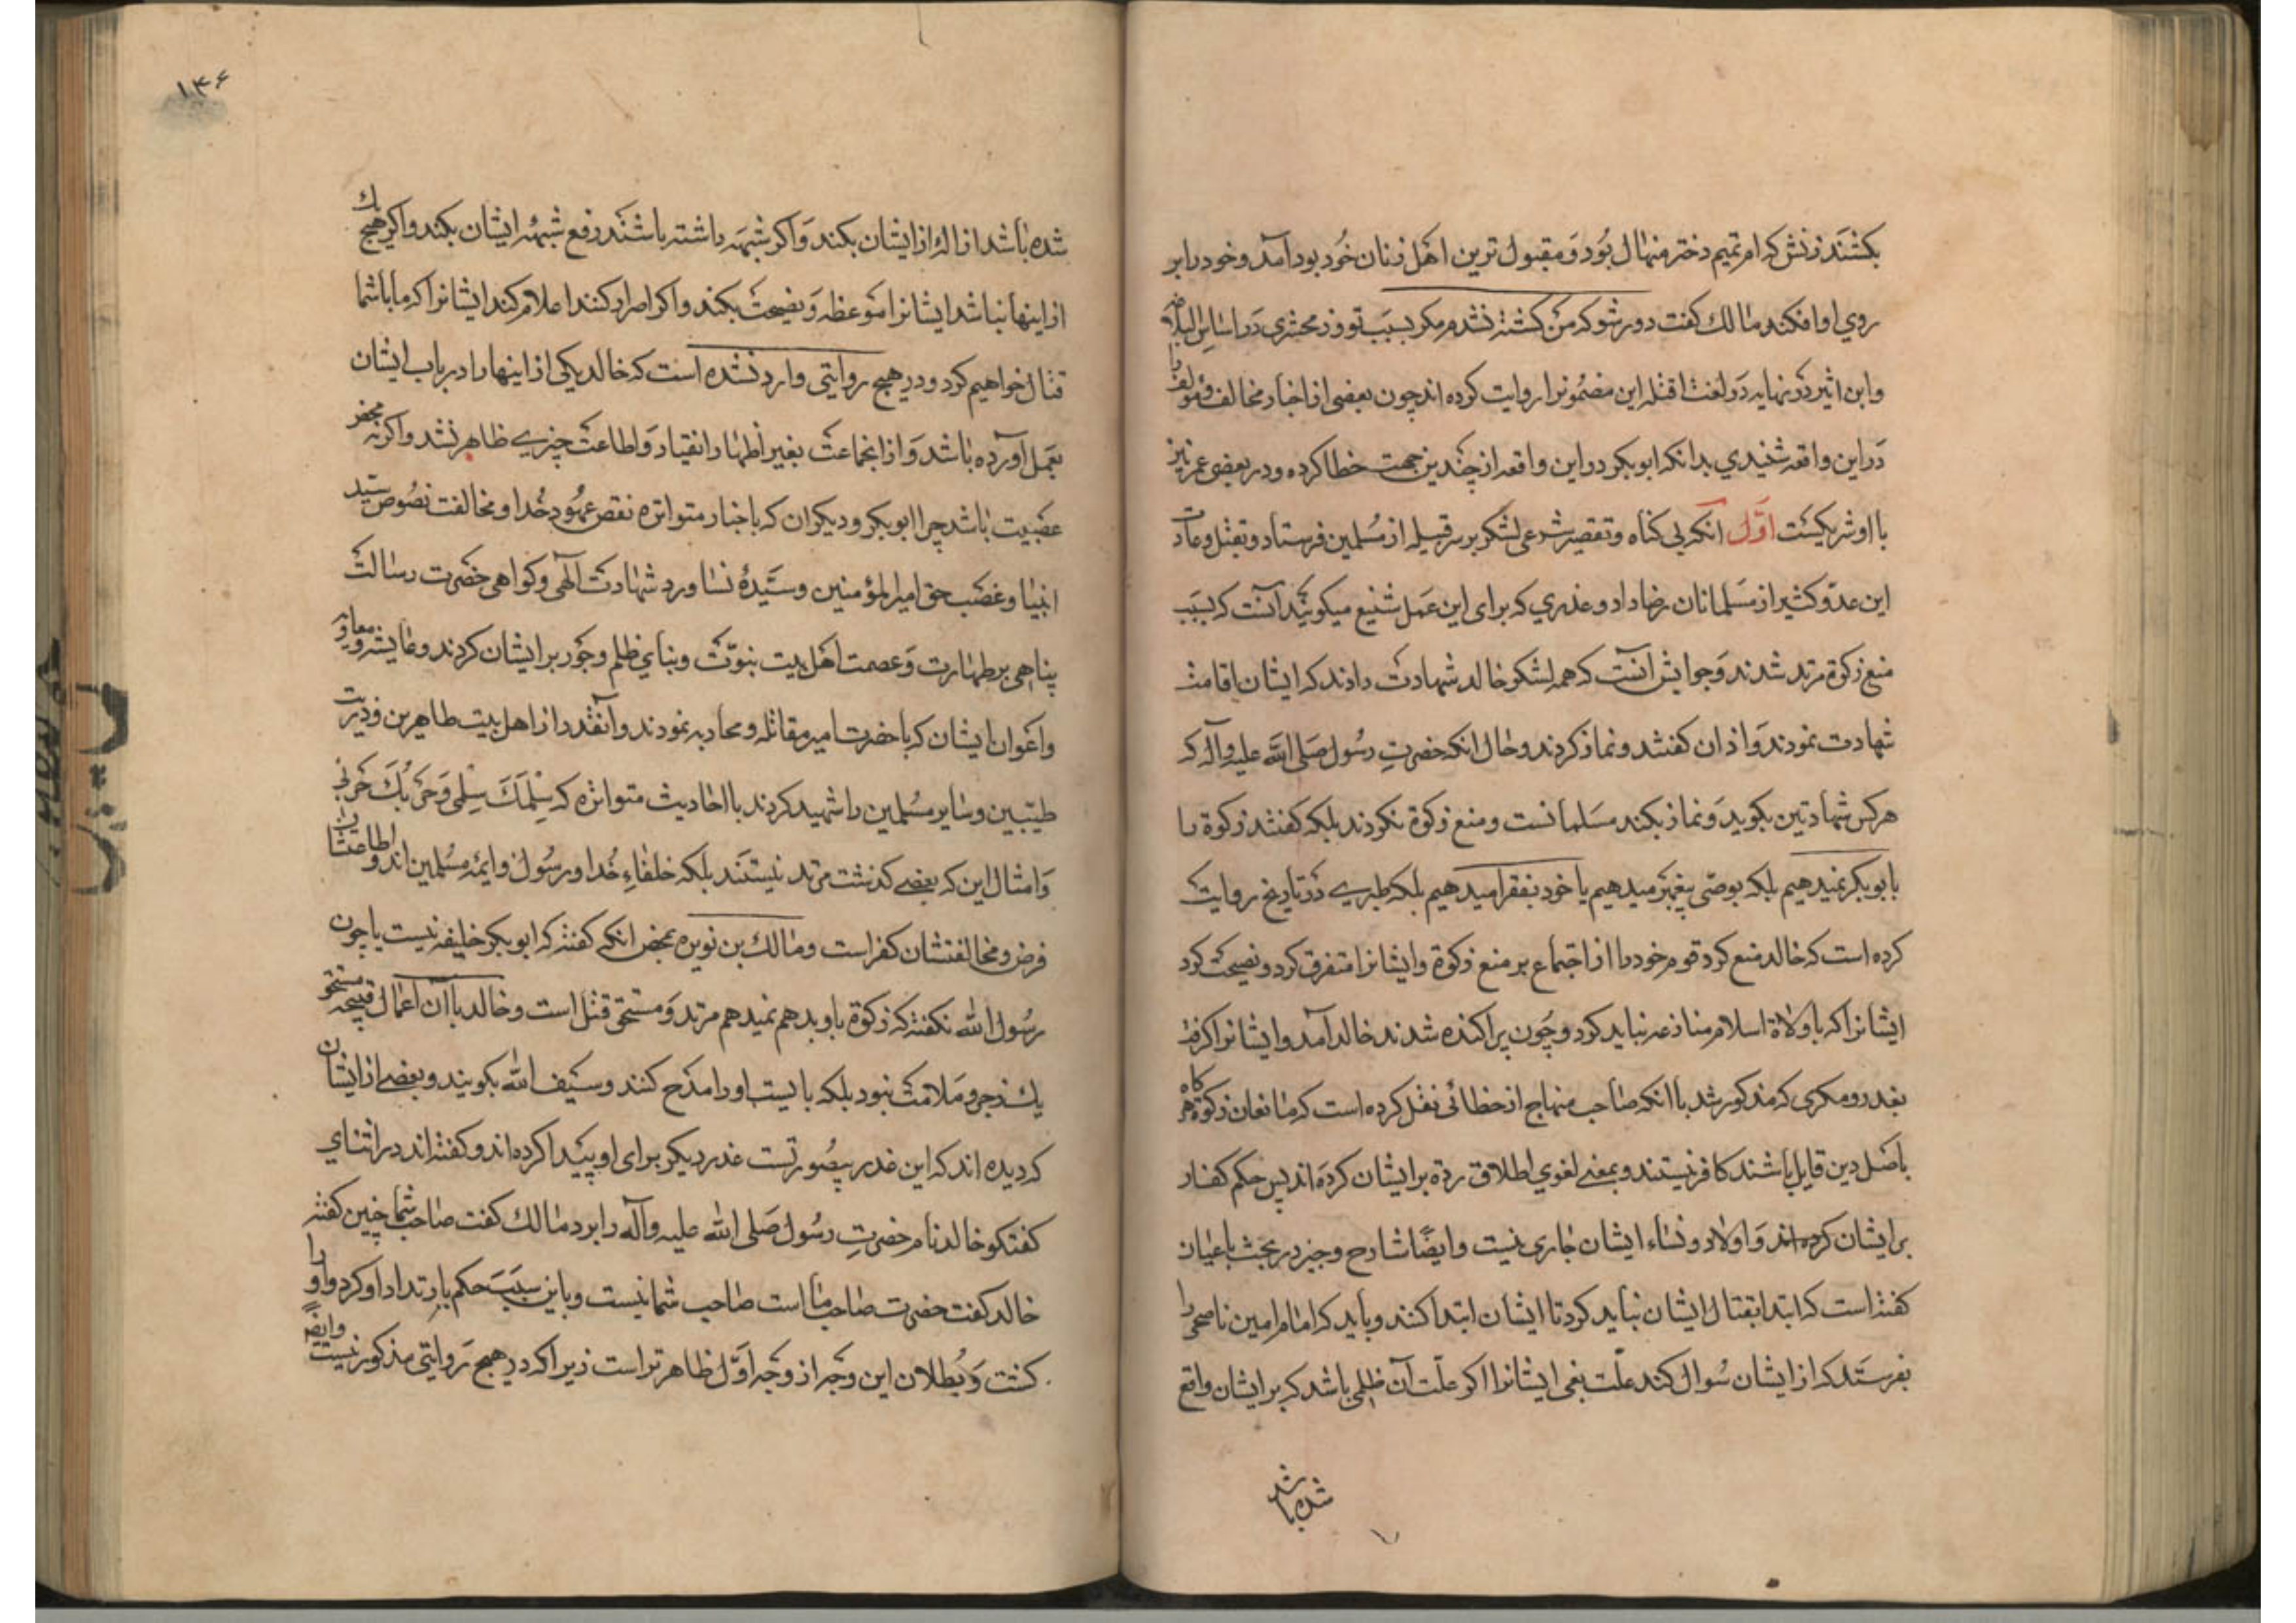 بکشند زنش که ام تمیم دختر منهال بود و مقبول ترین اهل زنان خود بود آمد و خود را بر
روی او افکند مالك کفت دور شو که من کشته نشدم مکر بسبب تو و زمخشری در اساس البلاغه
و ابن اثیر در نهایه در لغت اقتله این مضمونرا روایت کرده اند چون بعضی از اخبار مخالف و مؤلف را
در این واقعه شنیدی بدانکه ابوبکر در این واقعه از چندین جهت خطا کرده و در بعضی عمر نیز
با او شریکست اول آنکه بی کناه و تقصیر شرعی لشکر بر سر قبیله از مسلمین فرستاد و بقتل و غارت
این عدد کثیر از مسلمانان رضا داد و عذری که برای این عمل شنیع میکویند آنست که بسبب
منع زکوة مرتد شدند و جوابش آنست که همه لشکر خالد شهادت دادند که ایشان اقامت
شهادت نمودند و اذان کفتند و نماز کردند و حال انکه حضرت رسول صلی الله علیه و آله که
هر کس شهادتین بکوید و نماز بکند مسلمانست و منع زکوة نکردند بلکه کفتند زکوة را
بابوبکر نمیدهیم بلکه بوصی پیغمبر میدهیم یا خود بفقرا میدهیم بلکه طبری در تاریخ روایت
کرده است که خالد منع کرد قوم خود را از اجتماع بر منع زکوة و ایشانرا متفرق کرد و نصیحت کرد
ایشانرا که با ولاة اسلام منازعه نباید کرد و چون پراکنده شدند خالد آمد و ایشانرا کرفت
بغدر و مکری که مذکور شد با انکه صاحب منهاج از خطائی نقل کرده است که مانعان زکوة هر کاه
باصل دین قایل باشند کافر نیستند و بمعنی لغوی اطلاق رده بر ایشان کرده اند پس حکم کفار
بر ایشان کرده اند و اولاد و نساء ایشان جاری نیست و ایضًا شارح وجیز در بحث باغیان
کفته است که ابتدا بقتال ایشان نباید کرد تا ایشان ابتدا کنند و باید که امام امین ناصحی را
بفرستد که از ایشان سؤال کند علت بغی ایشانرا اکر علت آن ظلمی باشد که بر ایشان واقع
شده باشد
۱۳۶
شده باشد ازاله از ایشان بکند و اکر شبهه داشته باشند رفع شبهه ایشان بکند و اکر هیچ یك
از اینها نباشد ایشانرا موعظه و نصیحت بکند و اکر اصرار کنند اعلام کند ایشانرا که ما با شما
قتال خواهیم کرد و در هیچ روایتی وارد نشده است که خالد یکی از اینها را در باب ایشان
بعمل آورده باشد و از انجماعت بغیر اظهار انقیاد و اطاعت چیزی ظاهر نشد و اکر نه محض
عصبیت باشد چرا ابوبکر و دیکران که باخبار متواتره نقض عهود خدا و مخالفت نصوص سید
انبیا و غصب حق امیر المؤمنین و سیدۀ نسا و رد شهادت الهی و کواهی حضرت رسالت
پناهی بر طهارت و عصمت اهل بیت نبوت و بنای ظلم و جور بر ایشان کردند و عایشه و معاویه
و اعوان ایشان که با حضرت امیر مقاتله و محاربه نمودند و آنقدر از اهل بیت طاهرین و ذریت
طیبین و سایر مسلمین را شهید کردند با احادیث متواتره که سلمك سلمی و حربك حربی
و امثال این که بعضی کذشت مرتد نیستند بلکه خلفاء خدا و رسول و ایمۀ مسلمین اند و اطاعتشان
فرض و مخالفتشان کفر است و مالك بن نویره بمحض انکه کفته که ابوبکر خلیفه نیست یا چون
رسول الله نکفته که زکوة باو بدهم نمیدهم مرتد و مستحق قتل است و خالد با آن اعمال قبیحه مستحق
یك زجر و ملامت نبود بلکه بایست او را مدح کنند و سیف الله بکویند و بعضی از ایشان
که دیده اند که این عذر بیصورتست عذر دیکر برای او پیدا کرده اند و کفته اند در اثنای
کفتکو خالد نام حضرت رسول صلی الله علیه و آله را برد مالك کفت صاحب شما چنین کفته
خالد کفت حضرت صاحب ما است صاحب شما نیست و باین سبب حکم بارتداد او کرد و او را
کشت و بطلان این وجه از وجه اول ظاهر تر است زیرا که در هیچ روایتی مذکور نیست و ایضًا